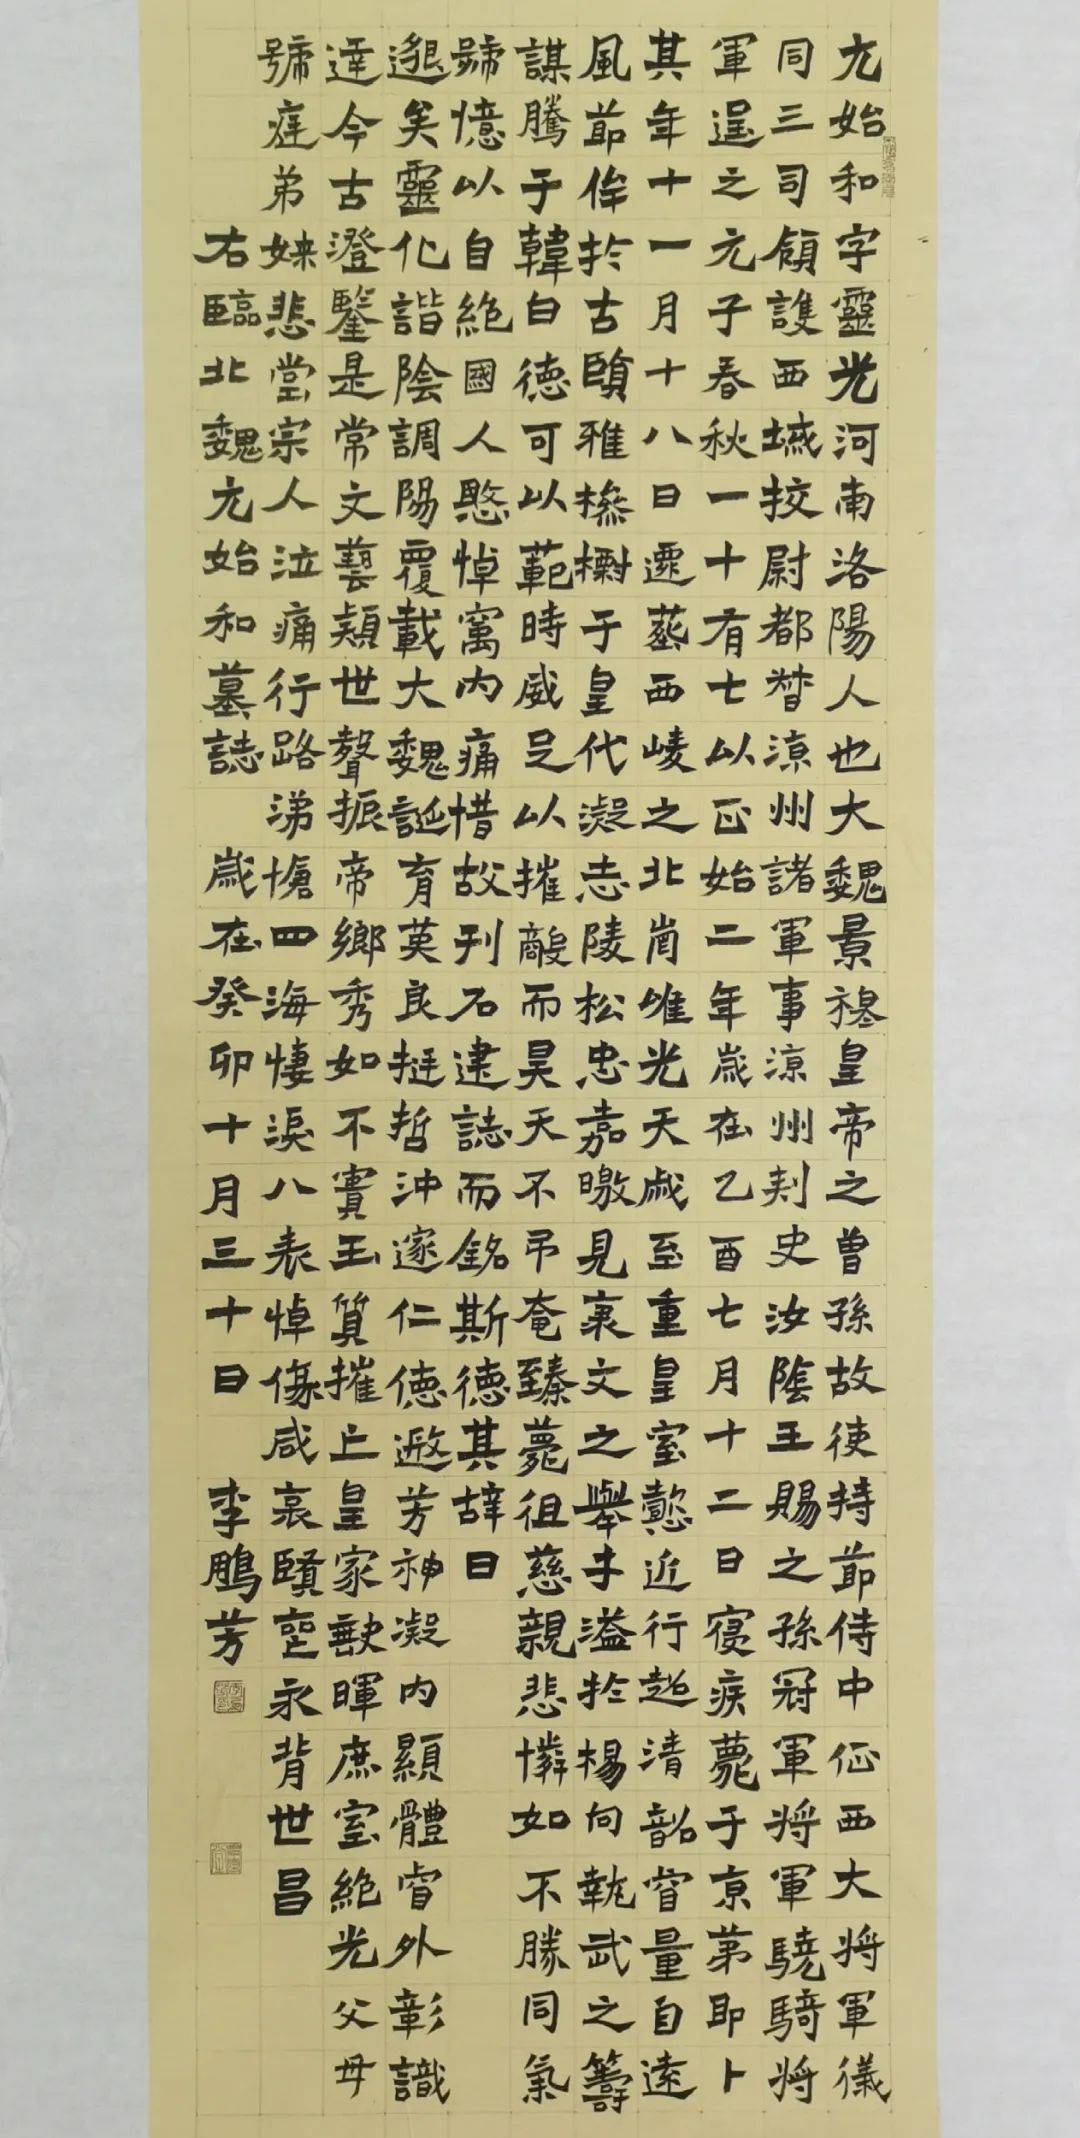 元始和字靈光河南洛陽人也大魏景穆皇帝之曾孫故使持節侍中征西大將軍儀
同三司領護西域校尉都督涼州諸軍事涼州刺史汝陰王賜之孫冠軍將軍驍騎將
軍逞之元子春秋一十有七以正始二年歲在乙酉七月十二日寑疾薨于京第即卜
其年十一月十八日遷葬西崚之北崗唯光天戚至重皇室懿近行超清韶睿量自遠
風節侔於古賾雅檖櫪于皇代凝志陵松忠嘉曒見裏文之舉才溢於楊向執武之籌
謀騰于韓白德可以範時威足以摧敵而昊天不弔奄臻薨徂慈親悲憐如不勝同氣
號憶以自絕國人愍悼寓內痛惜故刋石建誌而銘斯德其辭曰
邈矣靈化諧陰調陽覆載大魏誕育英良挺哲沖邃仁德遐芳神凝內顯體睿外彰識
達今古澄鑒是常文藝穎世聲振帝鄉秀如不實玉質摧上皇家歇暉庶室絕光父母
號㾏弟妹悲堂宗人泣痛行路涕愴四海悽淚八表悼傷咸哀賢壼永背世昌
右臨北魏元始和墓誌 歲在癸卯十月三十日 李鵬芳